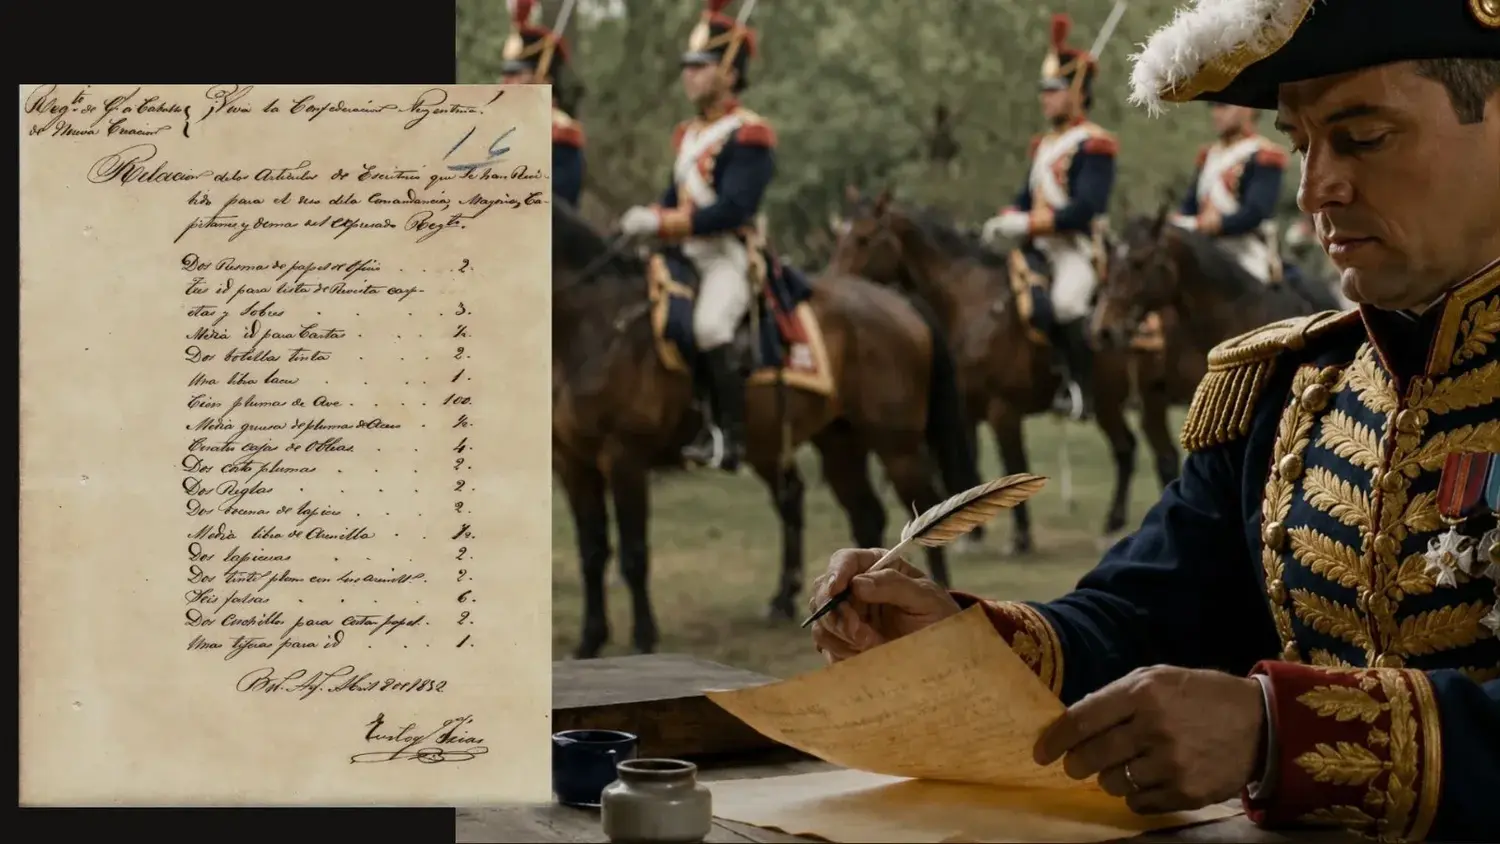 Regto. de G. a Caballo
de Nueva Creacion
¡Viva la Confederacion Argentina!
16
Relacion delos Articulos de Escritorio que se han Reci-
bido para el uso dela Comandancia, Mayoria, Ca-
pitanes y demas del expresado Regto.
Dos Resmas de papel de oficio . . . 2.
Tres id para lista de Revista carp-
etas y Sobres . . . . 3.
Media id para Cartas . . . ½.
Dos botellas tinta . . . 2.
Una libra lacre . . . . 1.
Cien plumas de Ave . . . . 100.
Media gruesa de plumas de Acero . . ½.
Cuatro cajas de Obleas . . . 4.
Dos corta plumas . . . . 2.
Dos Reglas . . . . 2.
Dos docenas de lapices . . . 2.
Media libra de Arenilla . . . ½.
Dos lapiceras . . . . 2.
Dos plom con 2.
Seis falsas . . . . 6.
Dos Cuchillos para cortar papel . . 2.
Unas tijeras para id . . . . 1.
Bs. Ays. Abril 2 de 1852
Eustoqo. Frias